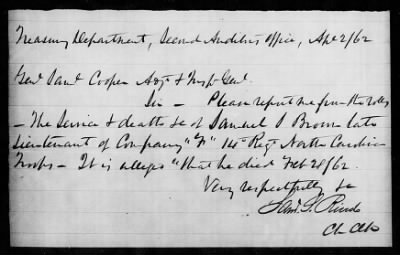 Treasury Department, Second Auditors Office, Apl 2/62
Genl Saml Cooper Adjt & Insp Genl.
Sir — Please report me from the rolls
— The Service & death &c of Samuel P Brown late
Lieutenant of Company "F" 14th Regt North Carolina
Troops — It is alleged "that he died Feb 28/62.
Very respectfully &c
Saml. S.
Ch Clk